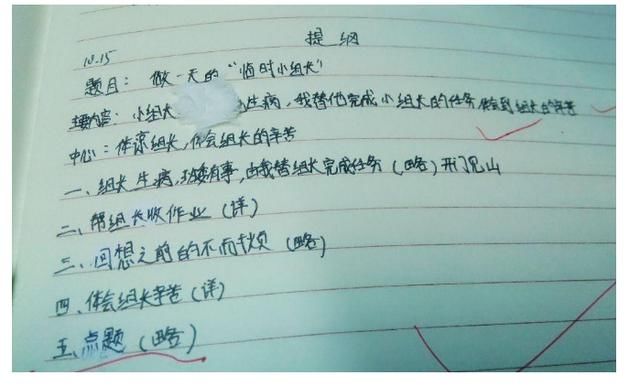 提纲
10.15
题目：做一天的“临时小组长”
主要内容：小组长生病，我替他完成小组长的任务，体会到组长的辛苦
中心：体谅组长，体会组长的辛苦
一、组长生病，有事，由我替组长完成任务（略）开门见山
二、帮组长收作业（详）
三、回想之前的不耐烦（略）
四、体会组长辛苦（详）
五、点题（略）